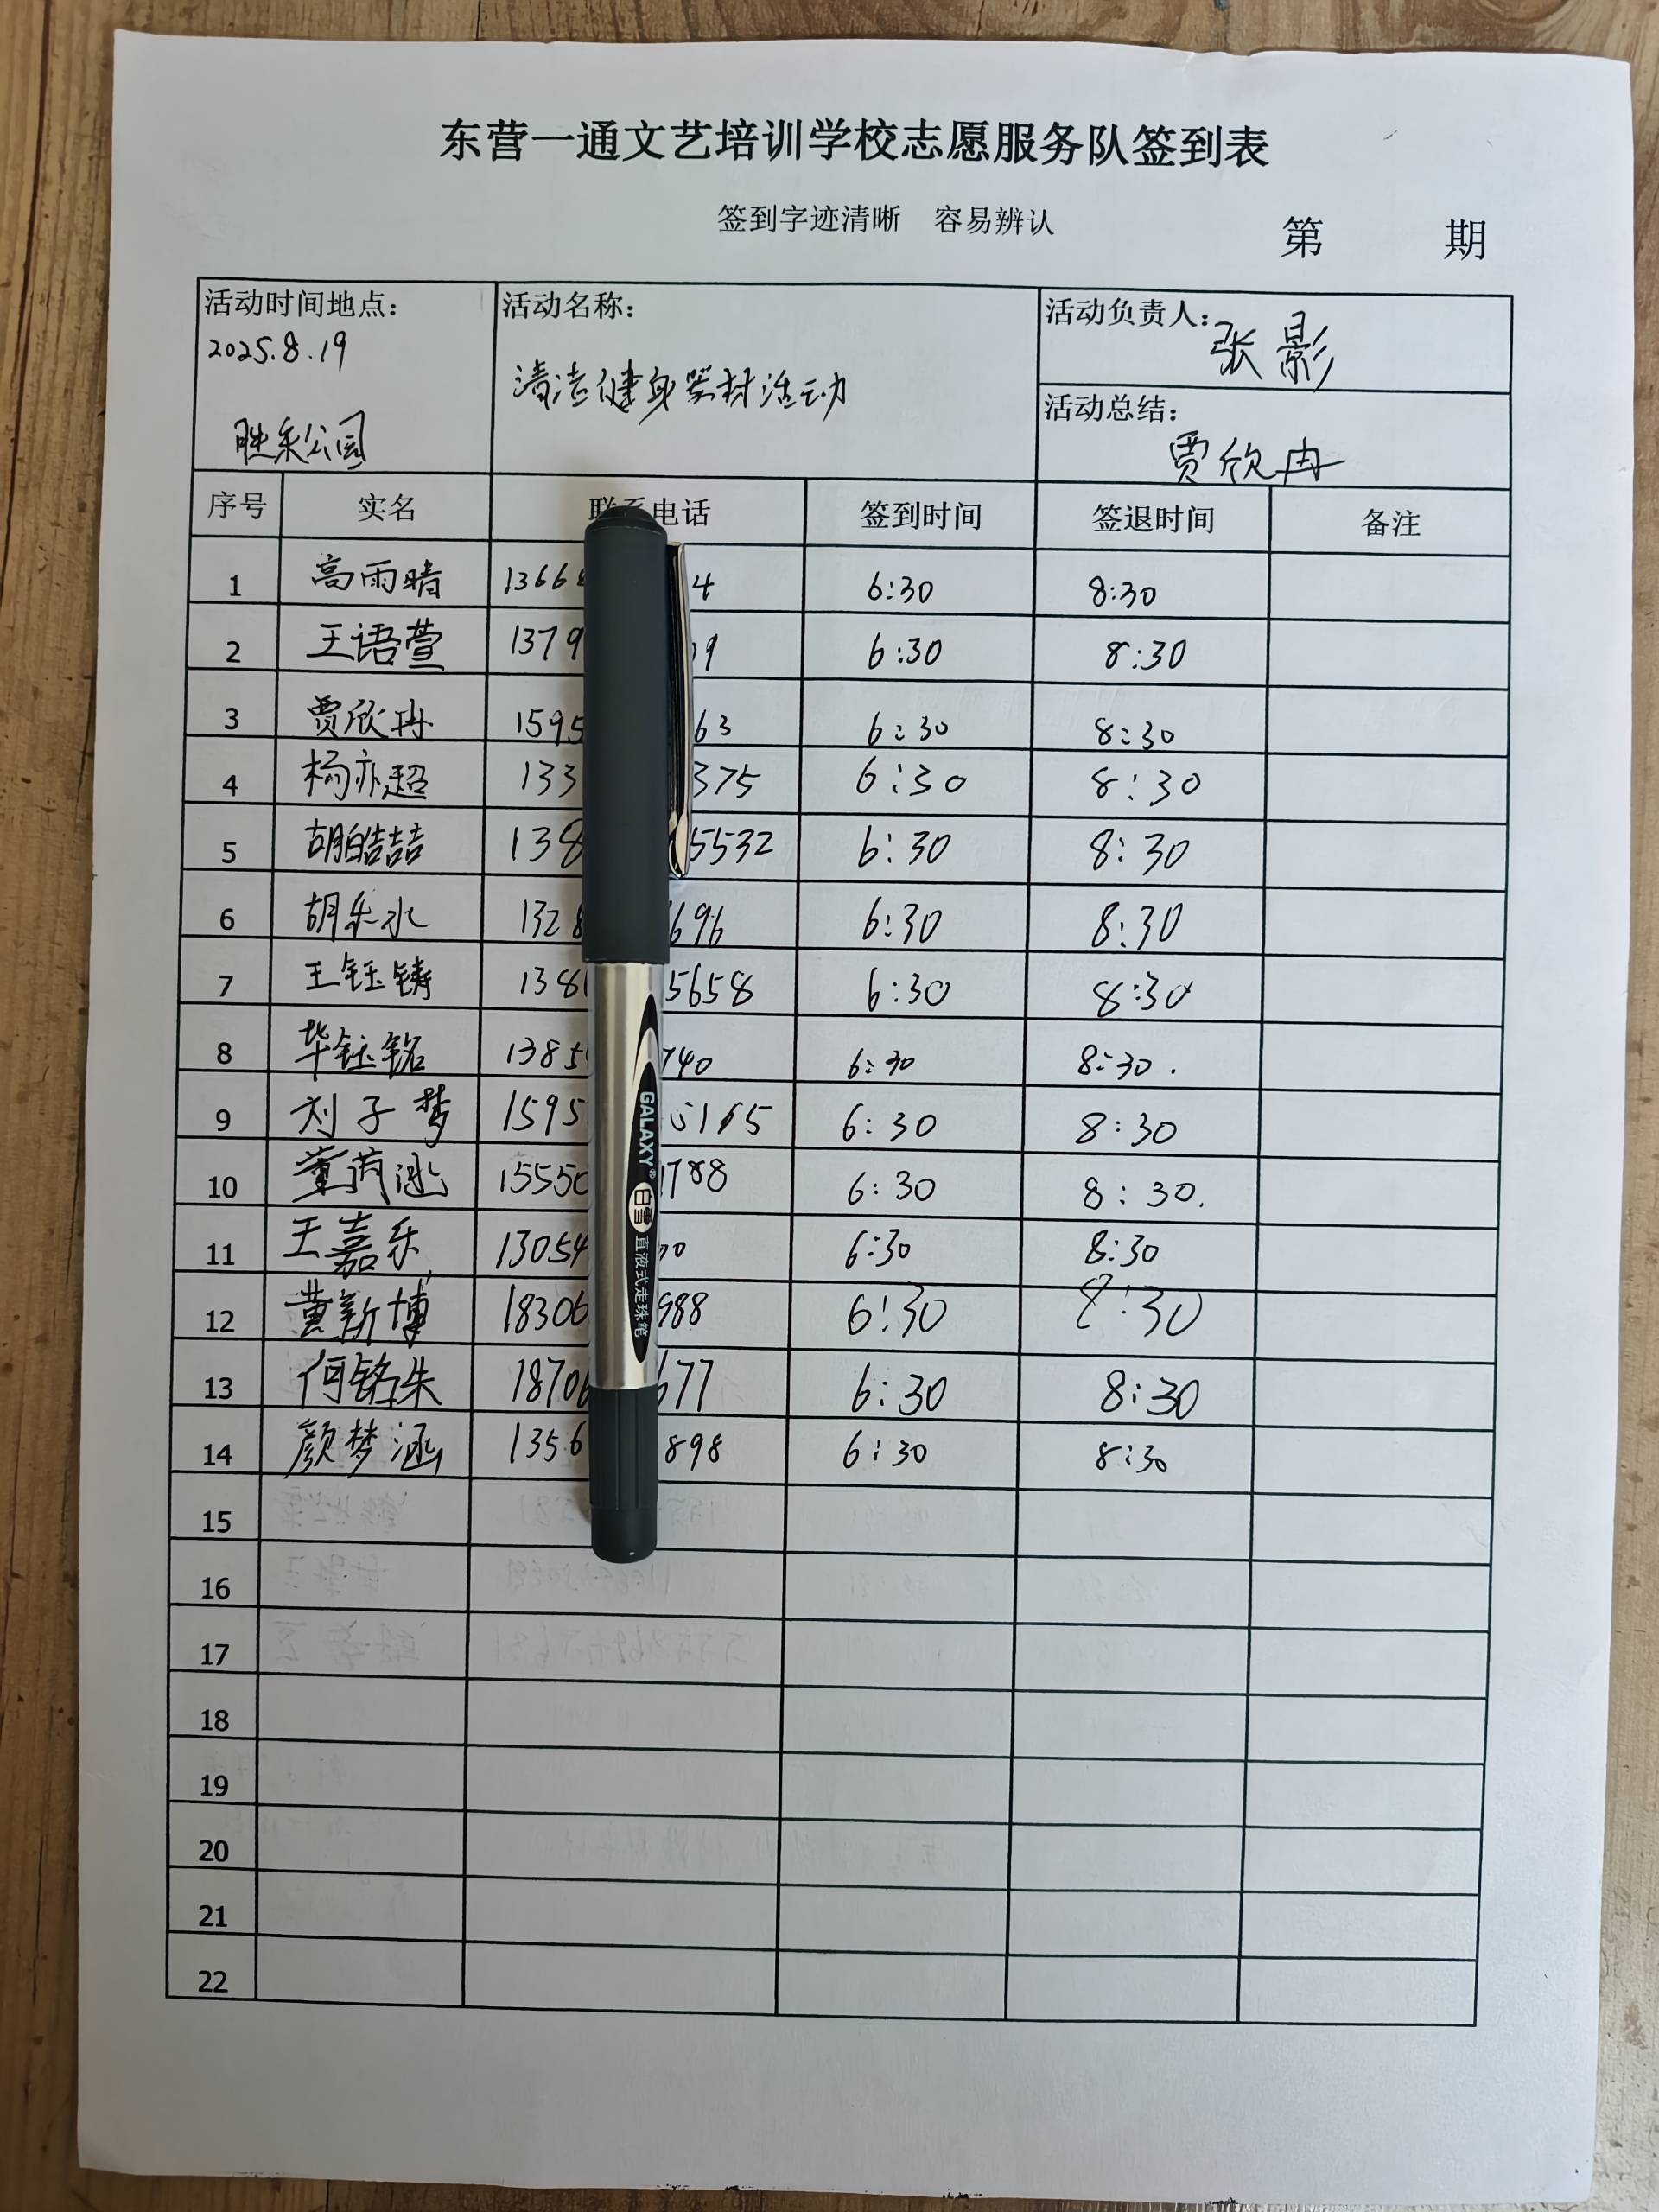 东营一通文艺培训学校志愿服务队签到表
签到字迹清晰 容易辨认
第 期
活动时间地点： 活动名称： 活动负责人：张影
2025.8.19
胜乐公园 清洁健身器材活动
活动总结：
贾欣冉
序号 实名 联系电话 签到时间 签退时间 备注
1 高雨晴 1366 4 6:30 8:30
2 王语萱 1379 9 6:30 8:30
3 贾欣冉 1595 63 6:30 8:30
4 杨亦超 133 375 6:30 8:30
5 胡皓喆 138 5532 6:30 8:30
6 胡乐水 132 696 6:30 8:30
7 王钰铸 138 5658 6:30 8:30
8 毕钰铭 1385 740 6:30 8:30.
9 刘子梦 1595 5165 6:30 8:30
10 董芮涵 1555 1788 6:30 8:30.
11 王嘉乐 13054 0 6:30 8:30
12 黄新博 18306 988 6:30 8:30
13 何铭朱 1870 677 6:30 8:30
14 颜梦涵 1356 898 6:30 8:30
15
16
17
18
19
20
21
22
GALAXY® 白雪 直液式走珠笔